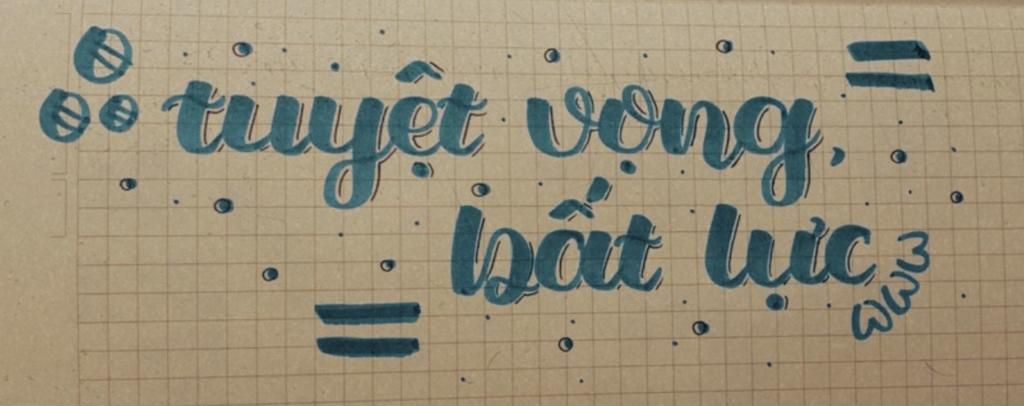 tuyệt vọng,
bất lực